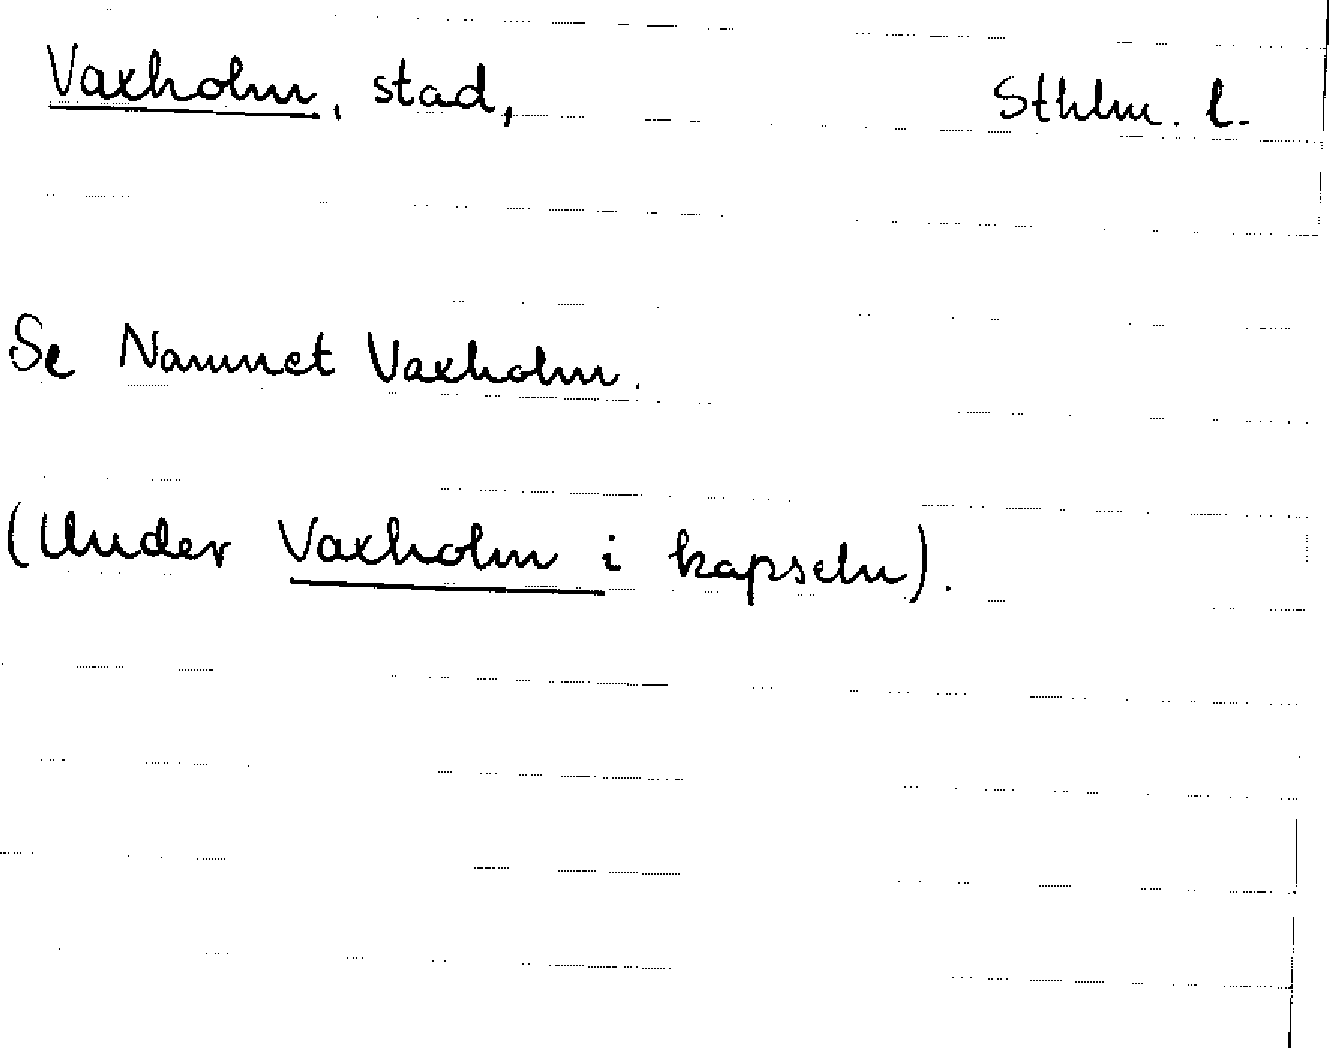 Vaxholm, stad, Sthlm. l.
Se Namnet Vaxholm.
(Under Vaxholm i kapseln).